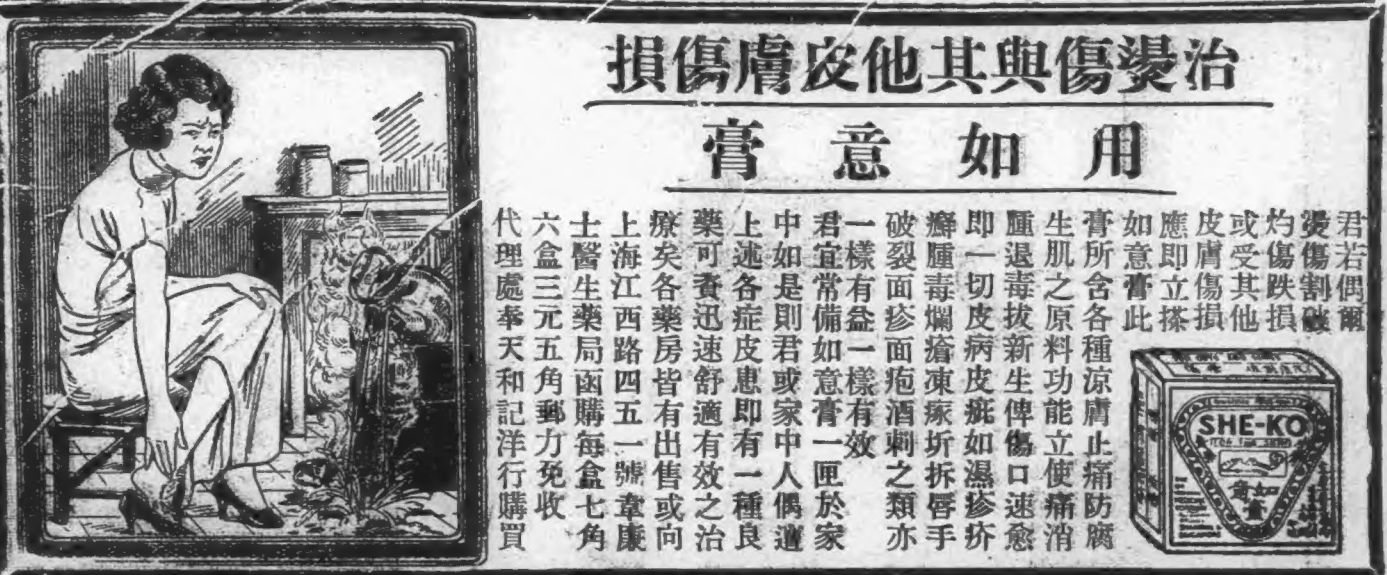 治燙傷與其他皮膚傷損
用如意膏
君若偶爾
燙傷割破
灼傷跌損
或受其他
皮膚傷損
應即立搽
如意膏此
膏所含各種涼膚止痛防腐
生肌之原料功能立使痛消
腫退毒拔新生俾傷口速愈
即一切皮病皮疵如濕疹疥
癬腫毒爛瘡凍瘃坼拆唇手
破裂面疹面疱酒刺之類亦
一樣有益一樣有效
君宜常備如意膏一匣於家
中如是則君或家中人偶遭
上述各症皮患即有一種良
藥可資迅速舒適有效之治
療矣各藥房皆有出售或向
上海江西路四五一號韋廉
士醫生藥局函購每盒七角
六盒三元五角郵力免收
代理處奉天和記洋行購買
SHE-KO
如意膏